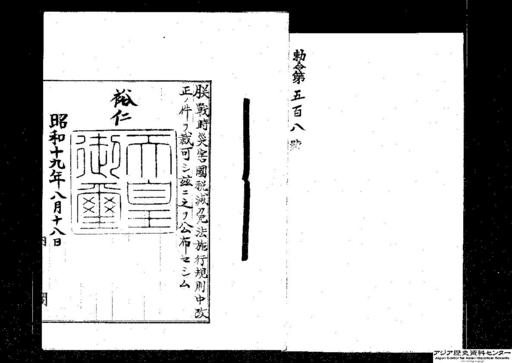 勅令第五百八號
朕戰時災害國税減免法施行規則中改
正ノ件ヲ裁可シ玆ニ之ヲ公布セシム
裕仁
天皇
御璽
昭和十九年八月十八日
アジア歴史資料センター
Japan Center for Asian Historical Records